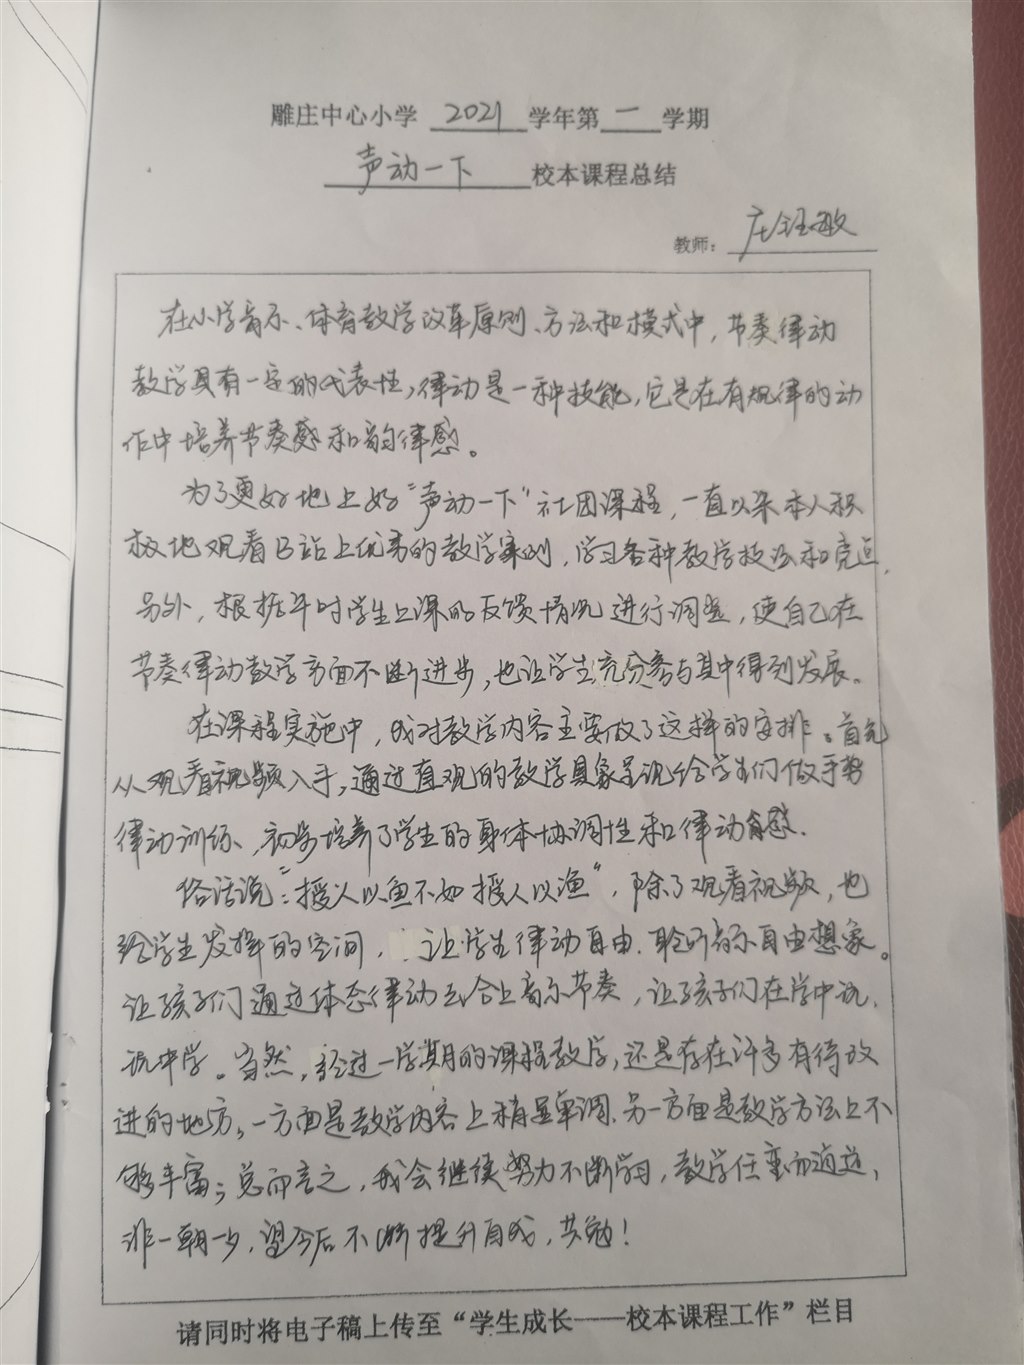 雕庄中心小学 2021 学年第 一 学期
声动一下 校本课程总结
教师： 庄钰敏
在小学音乐、体育教学改革原则、方法和模式中，节奏律动
教学具有一定的代表性，律动是一种技能，它是在有规律的动
作中培养节奏感和韵律感。
为了更好地上好“声动一下”社团课程，一直以来本人积
极地观看B站上优秀的教学案例，学习各种教学技法和亮点，
另外，根据平时学生上课的反馈情况进行调整，使自己在
节奏律动教学方面不断进步，也让学生充分参与其中得到发展。
在课程实施中，我对教学内容主要做了这样的安排。首先
从观看视频入手，通过直观的教学具象呈现给学生们做手势
律动训练、初步培养了学生的身体协调性和律动感。
俗话说：“授人以鱼不如授人以渔”，除了观看视频，也
给学生发挥的空间，让学生律动自由、聆听音乐自由想象。
让孩子们通过体态律动去合上音乐节奏，让孩子们在学中玩、
玩中学。当然，经过一学期的课程教学，还是存在许多有待改
进的地方，一方面是教学内容上稍显单调、另一方面是教学方法上不
够丰富；总而言之，我会继续努力不断学习，教学任重而道远，
非一朝一夕，望今后不断提升自我，共勉！
请同时将电子稿上传至“学生成长——校本课程工作”栏目